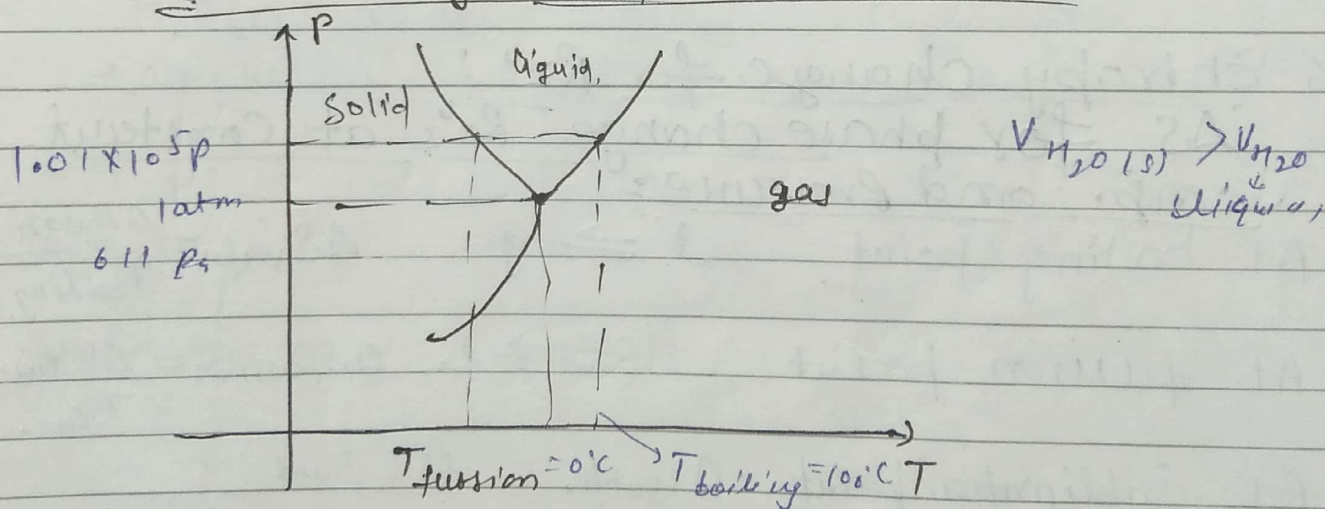 P
liquid,
Solid
1.01×10⁵P
1 atm
611 Pa
gas
V H₂O (s) > V H₂O
liquid,
T fussion = 0°C
T boiling = 100°C T